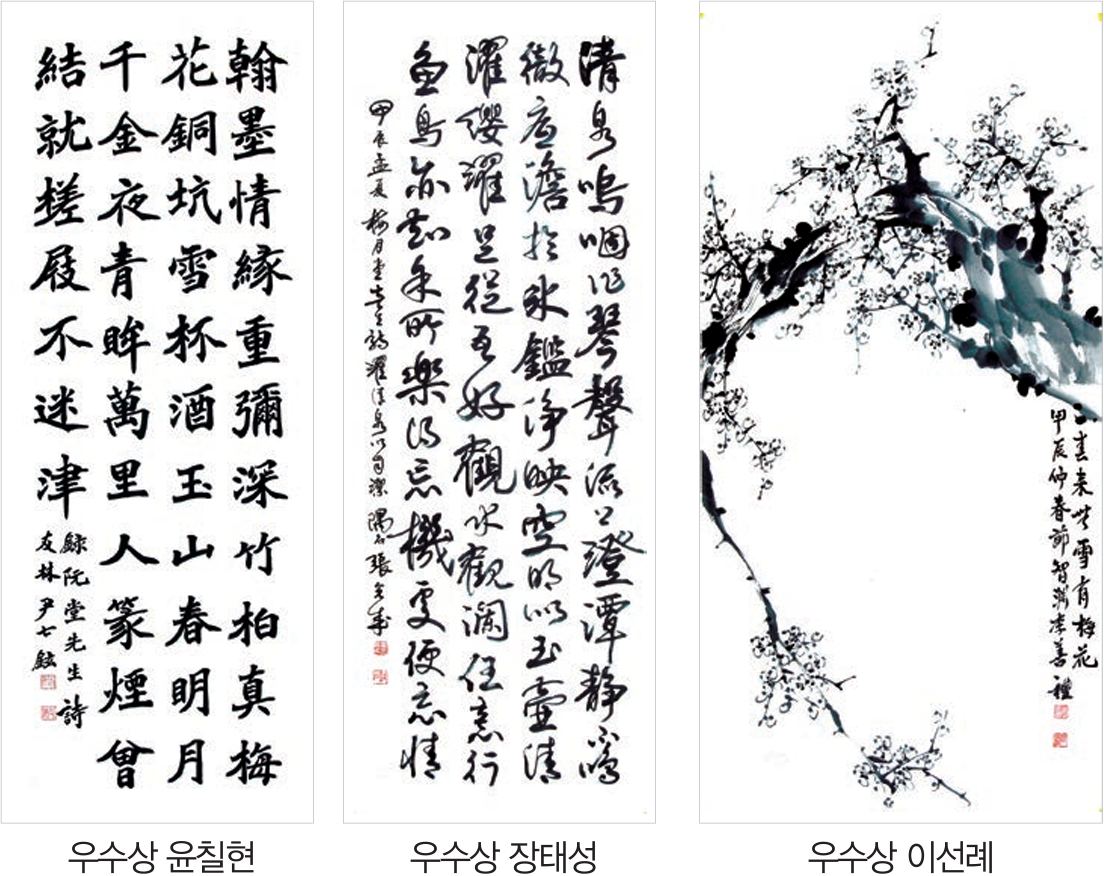 翰墨情緣重彌深竹柏真梅
花銅坑雪杯酒玉山春明月
千金夜青眸萬里人篆煙曾
結就槎屐不迷津
錄阮堂先生詩
友林尹七鉉
清泉嗚咽作琴聲流入澄潭靜不鳴
徹底澹於氷鑑淨映空明似玉壺清
濯纓濯足從吾好觀水觀瀾任意行
魚鳥亦知余所樂得忘機處便忘情
甲辰孟夏梅月堂先生詩濯清泉以自潔 張
春来 雪有梅花
甲辰仲春節智 李善禮
우수상 윤칠현
우수상 장태성
우수상 이선례